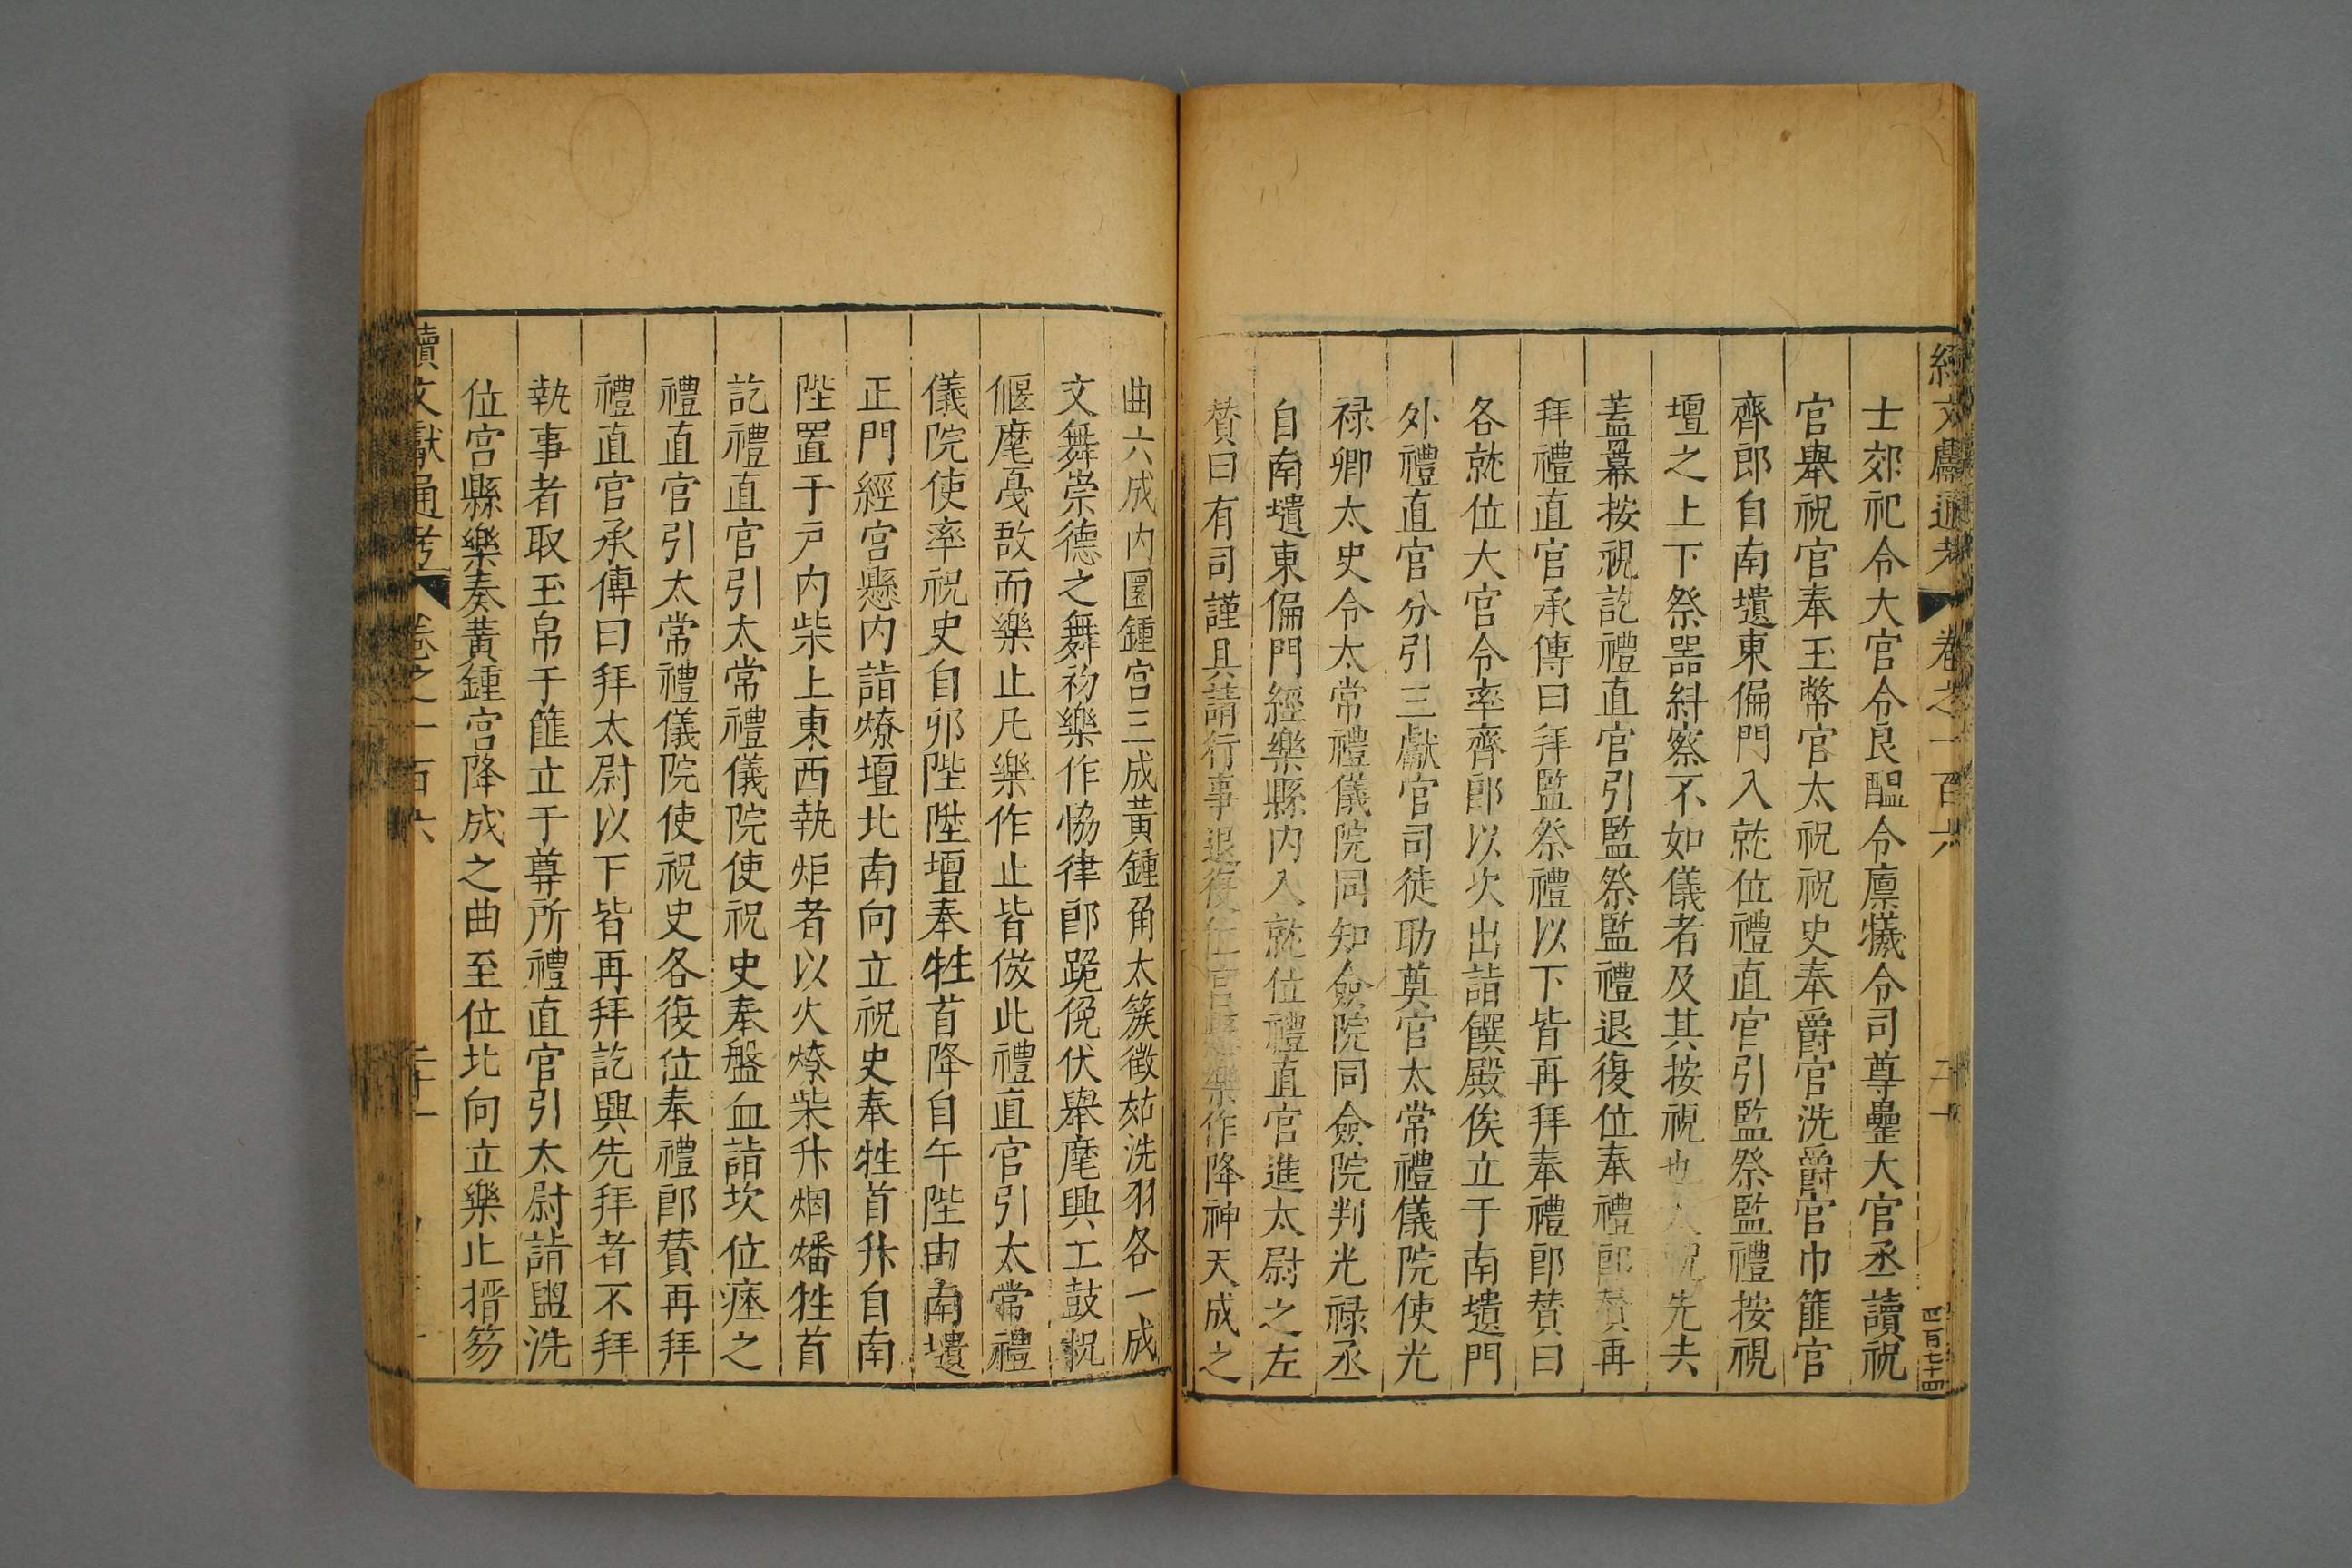 續文獻通考 卷之一百六 二十 四百七十四
士郊祀令大官令良醞令廪犧令司尊罍大官丞讀祝
官舉祝官奉玉幣官太祝祝史奉爵官洗爵官巾篚官
齊郎自南壝東偏門入就位禮直官引監祭監禮按視
壇之上下祭器糾察不如儀者及其按視也太祝先去
蓋冪按視訖禮直官引監祭監禮退復位奉禮郎贊再
拜禮直官承傳曰拜監祭禮以下皆再拜奉禮郎賛曰
各就位大官令率齊郎以次出詣饌殿俟立于南壝門
外禮直官分引三獻官司徒助奠官太常禮儀院使光
禄卿太史令太常禮儀院同知僉院同僉院判光禄丞
自南壝東偏門經樂縣内入就位禮直官進太尉之左
賛曰有司謹具請行事退復位宫縣樂作降神天成之
曲六成内圜鍾宫三成黄鍾角太簇徴姑洗羽各一成
文舞崇德之舞初樂作恊律郎跪俛伏舉麾興工鼓柷
偃麾戞敔而樂止凡樂作止皆倣此禮直官引太常禮
儀院使率祝史自卯陛陞壇奉牲首降自午陛由南壝
正門經宫懸内詣燎壇北南向立祝史奉牲首升自南
陛置于户内柴上東西執炬者以火燎柴升烟燔牲首
訖禮直官引太常禮儀院使祝史奉盤血詣坎位瘞之
禮直官引太常禮儀院使祝史各復位奉禮郎賛再拜
禮直官承傳曰拜太尉以下皆再拜訖興先拜者不拜
執事者取玉帛于篚立于尊所禮直官引太尉詣盥洗
位宫縣樂奏黄鍾宫降成之曲至位北向立樂止搢笏
續文獻通考 卷之一百六